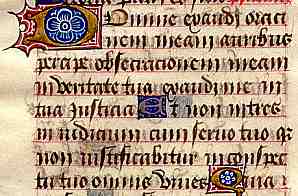 Domine exaudi oraci
nem meam auribus
percipe obsecracionem meam
in veritate tua exaudi me in
tua Justicia Et non intres
in iudicium cum servo tuo q
non iustificabitur in conspe
tu tuo omnis vivens Quia